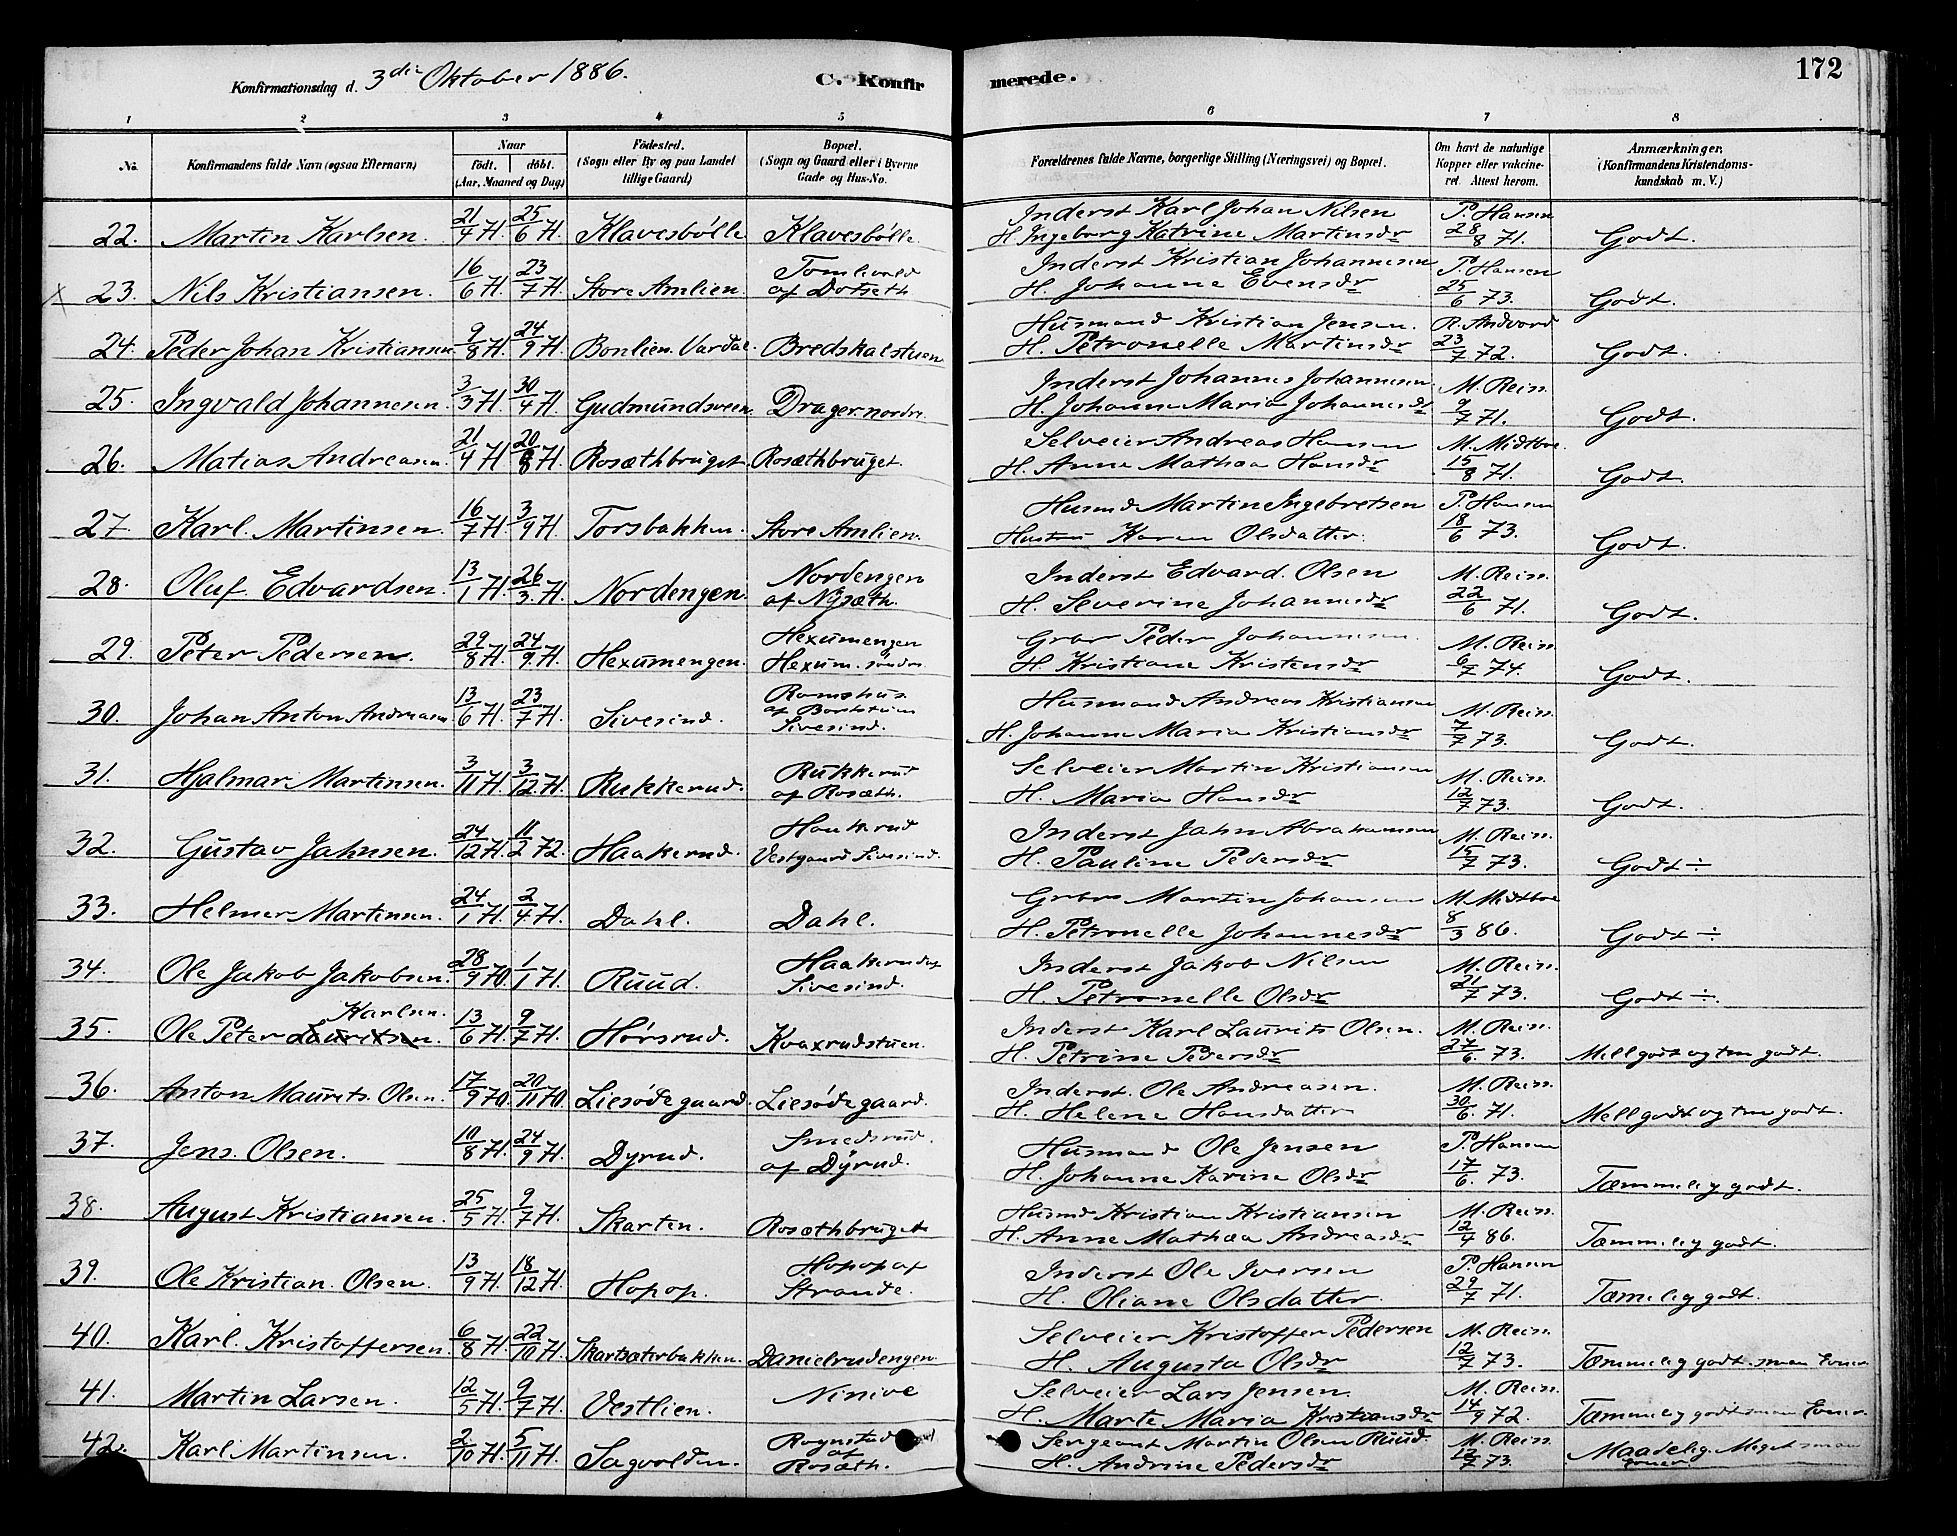 Konfirmationsdag d. 3die Oktober 1886. C. Konfirmerede. 172
1 2 3 4 5 6 7 8
No. Konfirmandens fulde Navn (ogsaa Efternavn) Naar födt. döbt. (Aar, Maaned og Dag) Födested. (Sogn eller By og paa Landet tillige Gaard) Bopæl. (Sogn og Gaard eller i Byerne Gade og Hus-No. Forældrenes fulde Navne, borgerlige Stilling (Næringsvei) og Bopæl. Om havt de naturlige Kopper eller vakcineret. Attest herom. Anmærkninger. (Konfirmandens Kristendomskundskab m. V.)
22. Martin Karlsen. 21/4 71. 25/6 71. Klavesbölle Klavesbölle Inderst Karl Johan Nilsen H. Ingeborg Katrine Martinsdr P. Hansen 28/8 71. Godt.
x 23. Nils Kristiansen. 16/6 71. 23/7 71. Store Amlien. af Dotseth Inderst Kristian Johannesen H. Johanne Evensdr P. Hansen 25/6 73. Godt.
24. Peder Johan Kristiansen 9/8 71. 24/9 71. Bonlien. Vardal. Bredskalstuen Husmand Kristian Jensen. H. Petronelle Martinsdr R. Andvord 23/7 72. Godt.
25. Ingvald Johannesen. 3/3 71. 30/4 71. Gudmundsveen. Drager nordre. Inderst Johannes Johannesen H. Johanne Maria Johannesdr M. Rein. 9/7 71. Godt.
26. Matias Andreasen. 21/4 71 20/8 71. Rosæthbruget. Rosæthbruget. Selveier Andreas Hansen H. Anne Mathea Hansdr M. Midtboe. 15/8 71. Godt.
27. Karl. Martinsen. 16/7 71. 3/9 71. Torsbakken. Store Amlien. Husmd Martin Ingebretsen Hustru Karen Olsdatter. P. Hansen 18/6 73. Godt.
28. Oluf. Edvardsen. 13/1 71. 26/3 71. Nordengen. Nordengen af Nysæth. Inderst Edvard. Olsen H. Severine Johannesdr M. Rein. 22/6 71. Godt.
29. Peter Pedersen. 29/8 71. 24/9 71. Hexumengen. Hexumengen Hexum. söndre Peder Johannesen. H. Kristiane Kristensdr M. Rein 6/7 74. Godt.
30. Johan Anton Andreasen. 13/6 71. 23/7 71. Sivesind. Sivesind. Husmand Andreas Kristiansen H. Johanne Maria Kristiansdr M. Rein. 7/7 73. Godt.
31. Hjalmar Martinsen. 3/11 71. 3/12 71. Rukkerud. Rukkerud af Rosæth. Selveier Martin Kristiansen H. Maria Hansdr M. Rein. 12/7 73. Godt.
32. Gustav Jahnsen. 24/12 71. 11/2 72. Haakerud. Haakerud Vestgaard Sivesind. Inderst Jahn Abrahamsen H. Pauline Pedersdr M. Rein. 15/7 73. Godt ÷
33. Helmer Martinsen. 24/1 71. 2/4 71. Dahl. Dahl. Martin Johansen H. Petronelle Johannesdr M. Midtboe 8/3 86. Godt ÷
34. Ole Jakob Jakobsen. 28/9 70. 1/1 71. Ruud. Haakerud af Sivesind. Inderst Jakob Nilsen H. Petronelle Olsdr M. Rein. 21/7 73. Godt ÷.
35. Ole Peter Lauritsen. Karlsen. 13/6 71. 9/7 71. Hörsrud. Kvaxrudstuen. Inderst Karl Laurits Olsen. H. Petrine Pedersdr M. Rein. 27/6. 73. Mell godt og tm godt.
36. Anton Maurits. Olsen. 17/9 70. 20/11 70. Liesödegaard. Liesödegaard. Inderst. Ole Andreasen. H. Helene Hansdatter M. Rein. 30/6. 71. Mell godt og tm godt.
37. Jens. Olsen. 10/8 71. 24/9 71. Dyrud. Smedsrud. af Dyrud. Husmand Ole Jensen H. Johanne Karine Olsdr P. Hansen 17/6. 73. Tæmmelig godt.
38. August Kristiansen. 25/5 71. 9/7 71. Skarten. Rosæthbruget Husmd Kristian Kristiansen H. Anne Mathea Andreasdr M. Rein. 12/4 86. Tæmmelig godt.
39. Ole Kristian. Olsen. 13/9 71. 18/12 71. Hopop. Hopop af Strande. Inderst Ole Iversen H. Oliane Olsdatter. P. Hansen 29/7 71. Tæmelig godt.
40. Karl. Kristoffersen. 6/8 71. 22/10 71. Skartsæterbakken. Danielrudengen. Selveier Kristoffer Pedersen H. Augusta Olsdr M. Rein. 12/7 73. Tæmmelig godt. smaa Evner
41. Martin Larsen. 12/5 71. 9/7 71. Vestlien. Ninive Selveier Lars Jensen. H. Marte Maria Kristiansdr M. Rein. 14/9 72. Tæmmelig godt smaa Evner.
42. Karl. Martinsen. 2/10 71. 5/11 71. Sagvolden. Rognstad af Rosæth. Sergeant Martin Olsen Ruud. H. Andrine Pedersdr M. Rein. 12/7 73. Maadelig. Meget smaa Evner.